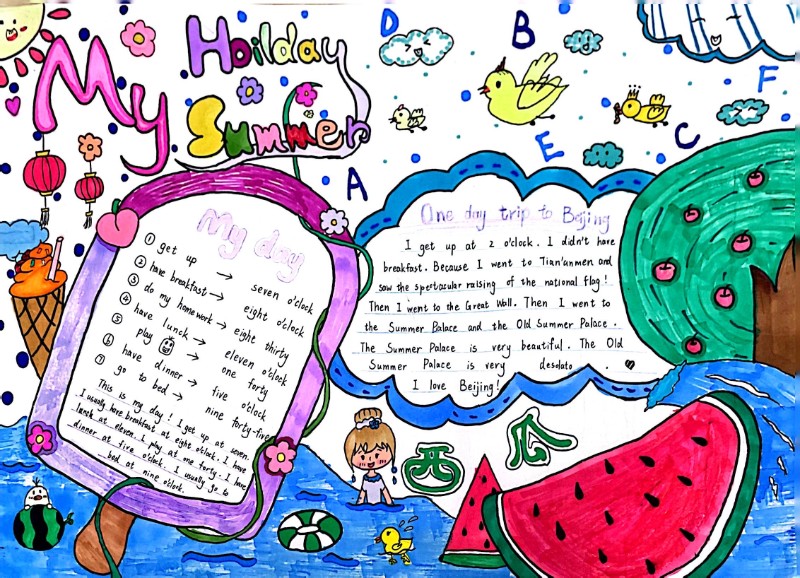 My
Hoilday
Summer
D
B
F
E
C
A
My day
① get up → seven o'clock
② have breakfast → eight o'clock
③ do my homework → eight thirty
④ have lunck → eleven o'clock
⑤ play → one forty
⑥ have dinner → five o'clock
⑦ go to bed → nine forty-five
This is my day! I get up at seven.
I usually have breakfast at eight o'clock. I have
lunck at eleven. I play at one forty. I have
dinner at fire o'clock. I usually go to
bed at nine o'clock.
One day trip to Beijing
I get up at 2 o'clock. I didn't have
breakfast. Because I went to Tian'anmen and
saw the spectacular raising of the national flag!
Then I went to the Great Wall. Then I went to
the Summer Palace and the Old Summer Palace.
The Summer Palace is very beautiful. The Old
Summer Palace is very desolate.
I love Beijing!
西瓜